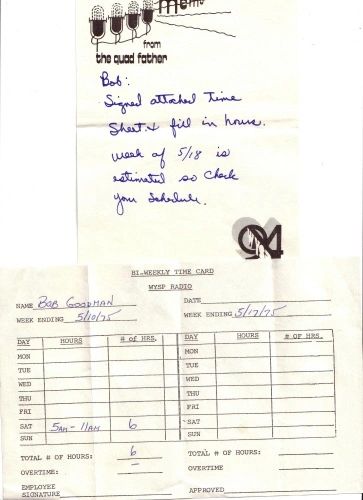 memo
from
the quad father
Bob:
Signed attached Time
Sheet & fill in hours.
week of 5/18 is
estimated so check
your schedule.
94
BI-WEEKLY TIME CARD
WYSP RADIO
NAME BOB GOODMAN DATE
WEEK ENDING 5/10/75 WEEK ENDING 5/17/75
DAY HOURS # of HRS. DAY HOURS # OF HRS.
MON MON
TUE TUE
WED WED
THU THU
FRI FRI
SAT 5AM - 11AM 6 SAT
SUN SUN
TOTAL # OF HOURS: 6 TOTAL # OF HOURS:
OVERTIME: — OVERTIME
EMPLOYEE
SIGNATURE APPROVED